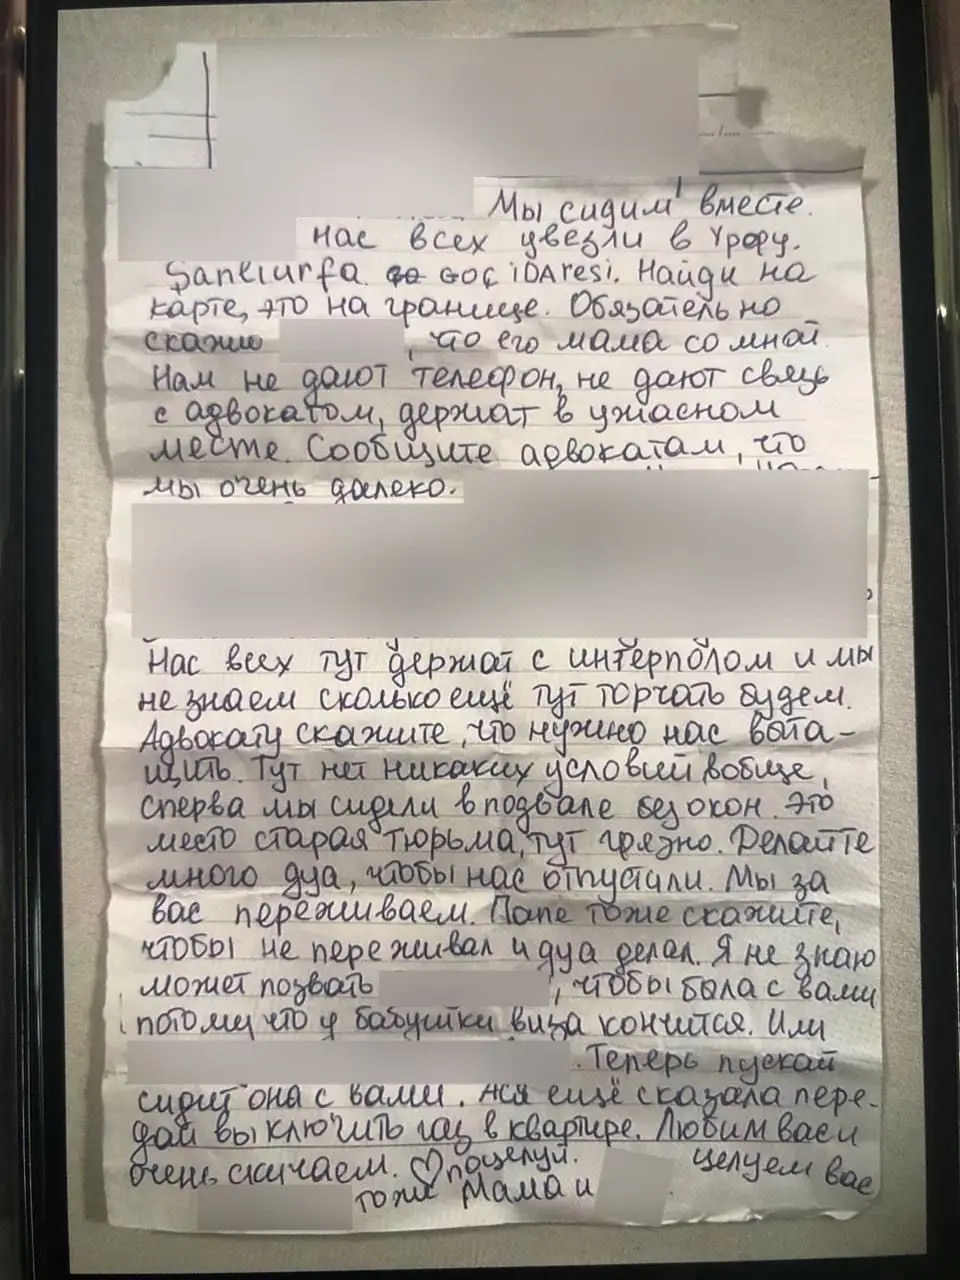 Мы сидим вместе.
нас всех увезли в Урфу.
Şanlıurfa GÖÇ İDAresi. Найди на
карте, это на границе. Обязательно
скажи , что его мама со мной.
Нам не дают телефон, не дают связь
с адвокатом, держат в ужасном
месте. Сообщите адвокатам, что
мы очень далеко.
Нас всех тут держат с интерполом и мы
не знаем сколько ещё тут торчать будем.
Адвокату скажите, что нужно нас выта-
щить. Тут нет никаких условий вобще,
сперва мы сидели в подвале без окон. Это
место старая тюрьма, тут грязно. Делайте
много дуа, чтобы нас отпустили. Мы за
вас переживаем. Папе тоже скажите,
чтобы не переживал и дуа делал. Я не знаю
может позвать , чтобы была с вами
потому что у бабушки виза кончится. Или
. Теперь пускай
сидит она с вами. ещё сказала пере-
дай выключить газ в квартире. Любим вас и
очень скучаем. ♡ поцелуй. целуем вас
тоже Мама и